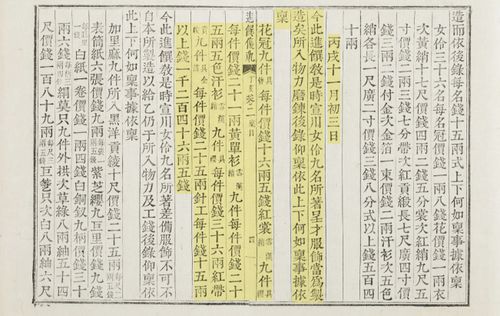 造而依後錄每名錢十五兩式上下何如稟事據依
女伶三十六名每名冠價錢一兩八錢花價錢一兩衣
次黃綃十七尺價錢四兩二錢五分裳次紅綃九尺五
寸價錢二兩三錢七分帶次紅貢緞長七尺廣四寸價
錢三兩錢付金次金箔一束價錢二兩汗衫次五色
綃各長二尺廣二寸價錢三錢八分式以上錢五百四
十兩
丙戌十一月初三日
今此進饌敎是時宣川女伶九名所著呈才服飾當爲製
造矣所入物力磨鍊後錄仰稟依此上下何如稟事據依
稟
花冠九件每件價錢十六兩五錢紅裳九件
每件價錢二十一兩黃單衫九件每件價錢二十
五兩五色汗衫九件每件價錢三十六兩紅帶
九件每件價錢二十五兩針工每件錢十五兩
以上錢一千二百四十六兩五錢
今此進饌敎是時宣川女伶九名所著差備服飾不可不
自本所製造以給乙仍于所入物力及工錢後錄仰稟依
此上下何如稟事據依稟
加里麻九件所入黑洋貢綾十尺價錢二十五兩
表箭紙六張價錢九兩紫芝纓九亘里價錢九錢
白紙一卷價錢一兩四錢白銅釵九柄價錢三十
兩六錢莫只九件外拱次草綠八兩紬五十四
尺價錢二百八十九兩只次白八兩紬六尺